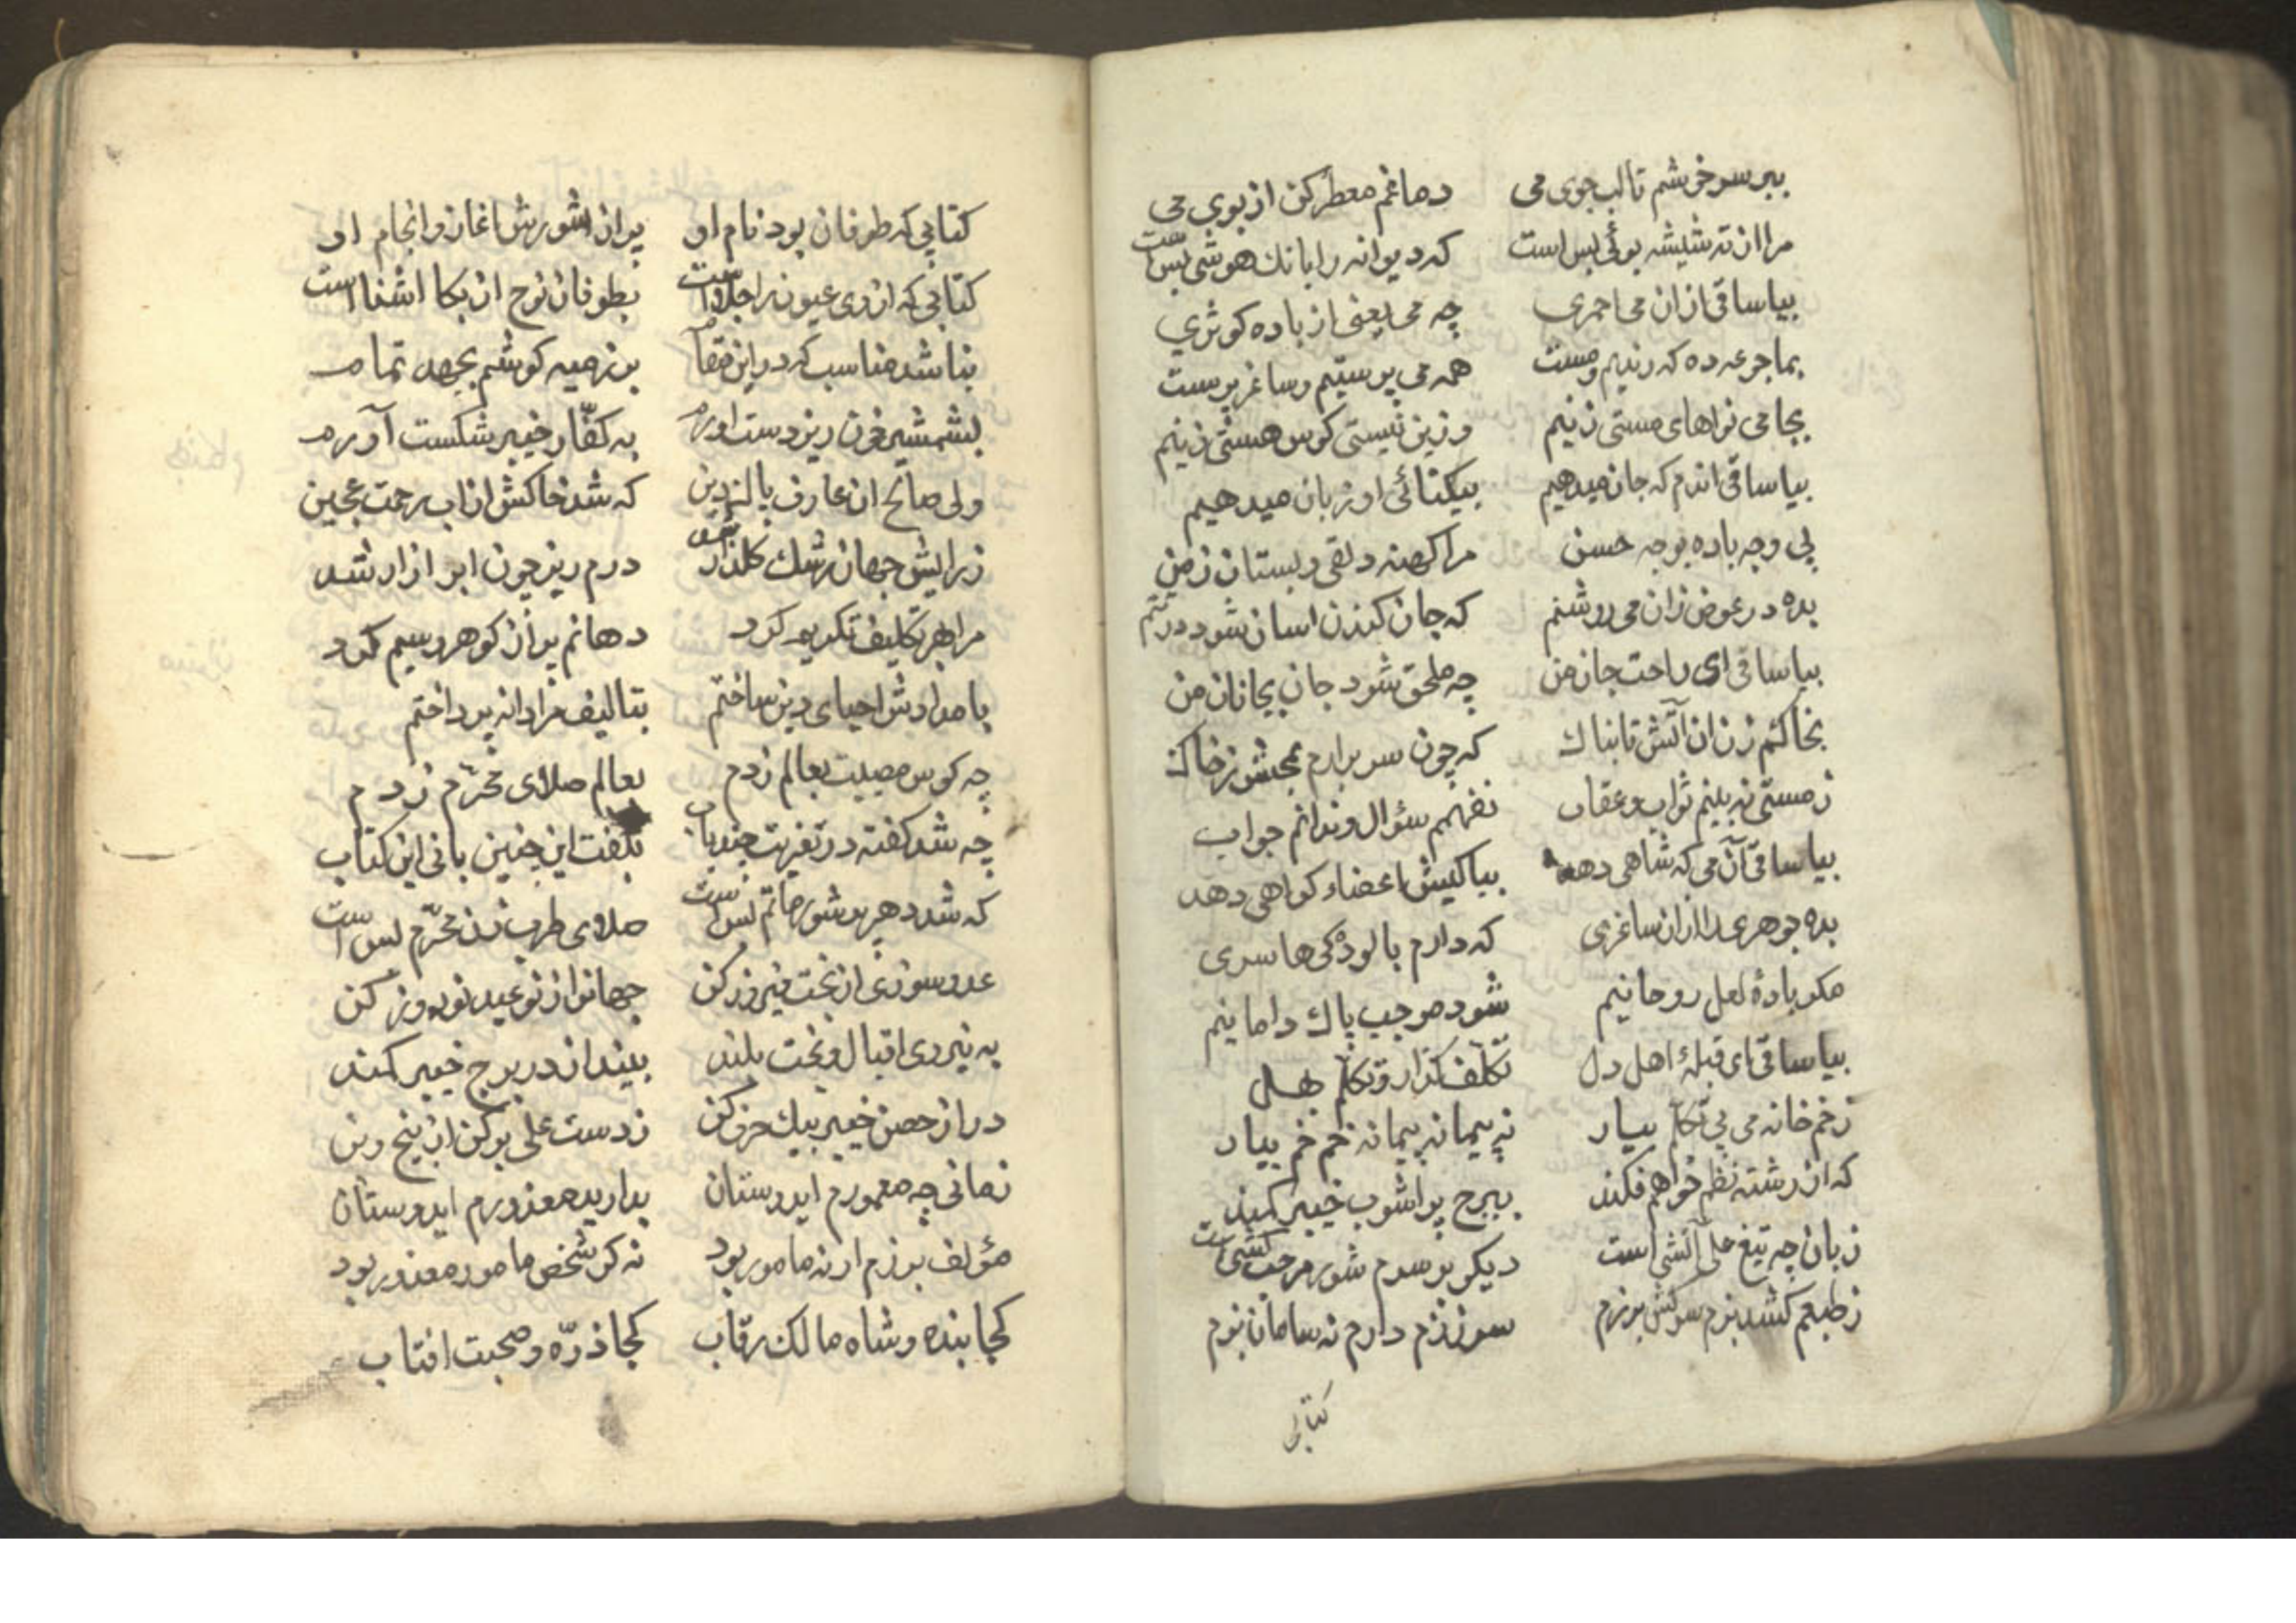 ببر سر خوشم تا لب جوی می دماغم معطر کن از بوی می
مرا از ته شیشه بوئی بس است که دیوانه را بانك هوشی بس است
بیا ساقی ازان می احمری چه می یعنی از باده کوثری
بما جرعه ده که رندیم و مست همه می پرستیم و ساغر پرست
بجامی نواهای مستی زنیم وزین نیستی کوس هستی زنیم
بیا ساقی اندم که جان میدهیم بیکتائی او زبان میدهیم
پی وجه باده بوجه حسن مرا کهنه دلقی و بستان ز من
بده در عوض زان می روشنم که جان کندن اسان شود در تنم
بیا ساقی ای راحت جان من چه ملحق شود جان بجانان من
بخاکم زن زان آتش تابناك که چون سر برارم بمحشر ز خاك
ز مستی نه بینم ثواب و عقاب نفهمم سؤال و ندانم جواب
بیا ساقی آن می که شاهی دهد بپاکیش اعضاء کواهی دهد
بده جوهری را ازان ساغری که دارم بالودکی ها سری
مکر بادۀ لعل روحانیم شود موجب پاك دامانیم
بیا ساقی ای قبلۀ اهل دل تکلف گذار و تکلم بهل
ز خم خانه می بی تکلم بیار نه پیمانه پیمانه خم خم بیار
که از رشته نظم خواهم فکند ببرج پر اشوب خیبر کمند
زبان چه تیغ علی آتشی است دیکر بر سرم شور مرحب کشی است
ز طبعم کشد بزم سرکش برزم سر رزم دارم نه سامان بزم
کتابی
کتابی که طوفان بود نام او پر از شورش اغاز و انجام او
کتابی که از وی عیون را جلا است بطوفان نوح از بکا اشنا است
بنا شد مناسب که در این مقام برزمیه کوشم بجهد تمام
بشمشیر خون ریز دست اورم به کفّار خیبر شکست آورم
ولی صالح ان عارف پاك دین که شد خاکش از اب رحمت عجین
ز رایش جهان رشك کلذار شد درم ریز چون ابر ازار شد
مرا بهر تکلیف تکریم کرد دهانم پر از کوهر و سیم کرد
بامدادش احیای دین ساختم بتالیف مردانه پرداختم
چه کوس مصیبت بعالم زدم بعالم صلای محرّم زدم
چه شد کفته در تعزیت چند باب بکفت این چنین بانی این کتاب
که شد دهر پر شور ماتم بس است صلای طرب زن محرّم بس است
عدو سوزی از بخت فیروز کن جهانرا از نو عید نوروز کن
به نیروی اقبال و بخت بلند بینداز در برج خیبر کمند
در از حصن خیبر بیك حرف کن ز دست علی بر کن از بیخ و بن
زمانی چه معمورم ایدوستان بدارید معذورم ایدوستان
مؤلف برزم ار نه مامور بود نه کر شخص مامور معذور بود
کجا بنده و شاه مالك رقاب کجا ذرّه و صحبت افتاب